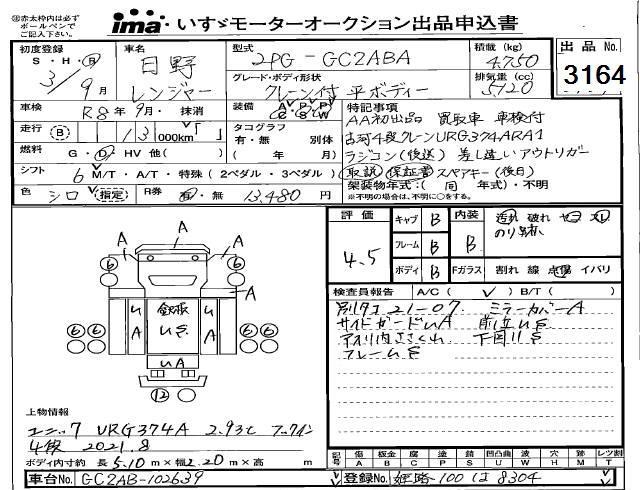 ※赤太枠内は必ず
ボールペンで
ご記入下さい。
ima いすゞモーターオークション出品申込書
出品 No.
3164
初度登録
S・H・R
3/9月
車名
日野
レンジャー
型式
2PG-GC2ABA
積載 (kg)
4,750
グレード・ボディ形状
クレーン付 平ボディー
排気量 (cc)
5,120
車検
R8年9月・抹消
装備
A/C P/S P/W
特記事項
AA初出品 買取車 車検付
走行 (B)
13
000km「 」
タコグラフ
有・無 別体
( 年 月)
古河4段クレーンURG374ARA1
ラジコン(後送) 差し違いアウトリガー
燃料
G・D HV 他( )
シフト
6 M/T・A/T・特殊 (2ペダル・3ペダル)
取説 保証書 スペアキー(後日)
架装物年式:( 同 年式)・不明
※不明の場合は、不明に○をする。
色
シロ (指定)
R券
有・無 13,480円
評価
4.5
キャブ B
フレーム B
ボディ B
内装
B
汚れ 破れ
Fガラス
割れ 線 点傷 イバリ
検査員報告
A/C( レ ) B/T( )
別タコ21-07 ミラーカバーA
フレームS
A A A
A
6 6
6 6 6 6
12
上物情報
ユニック URG374A 2.93t フックイン
4段 2021.8
ボディ内寸約 長 5.10m×幅2.20m×高 m
記号 傷 板金 腐 塗 錆 凹凸曲 波 穴 要 レツ割
A B C P S U W H M T
車台No.
GC2AB-102639
登録No.
姫路 100 は 8304